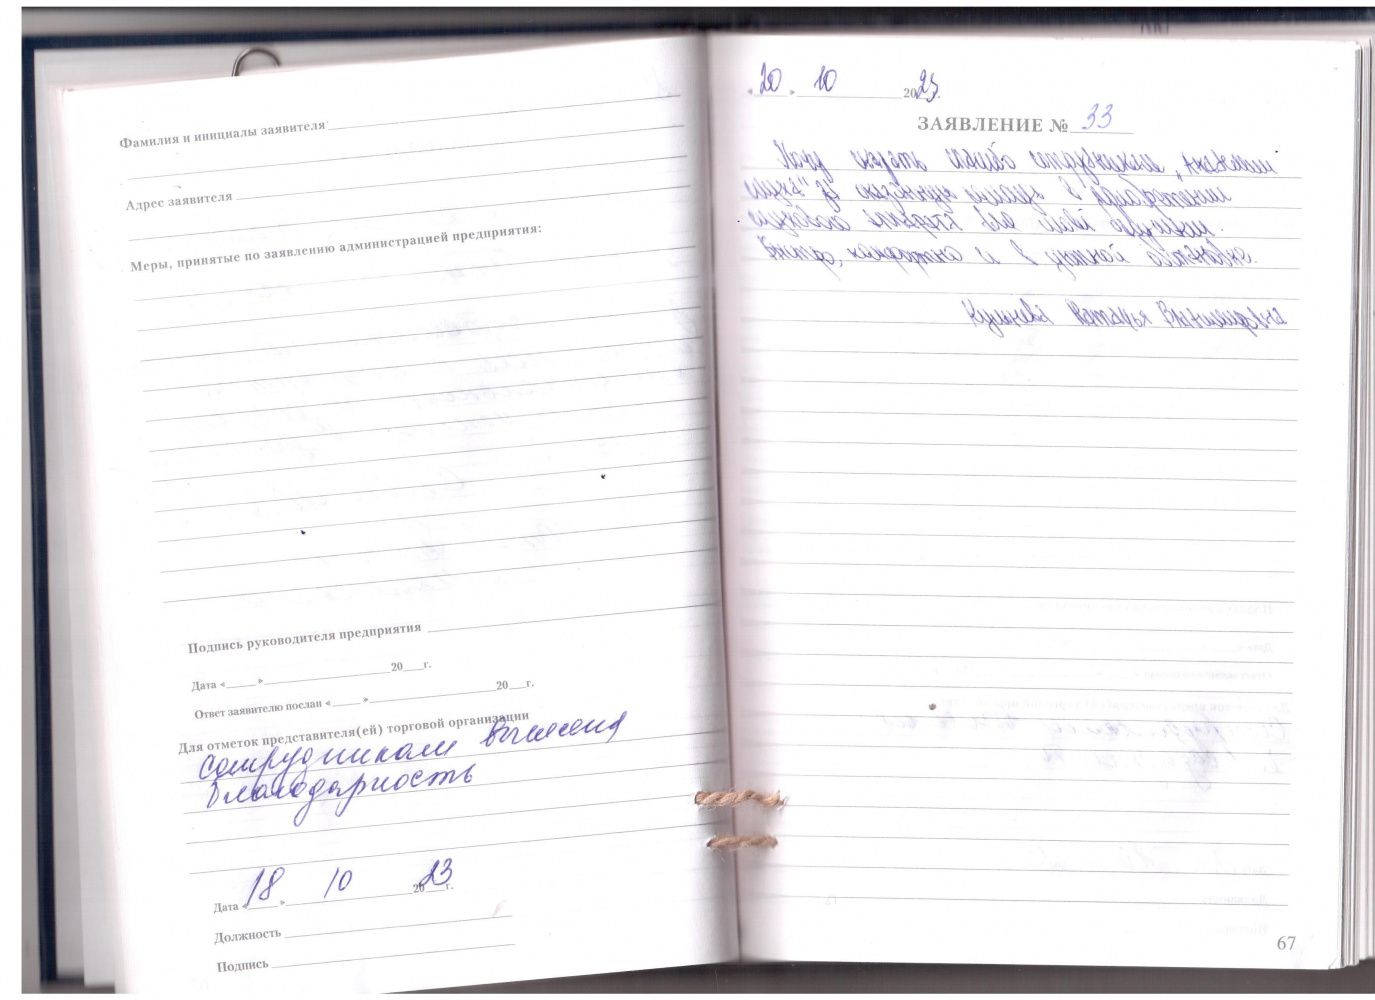 Фамилия и инициалы заявителя
Адрес заявителя
Меры, принятые по заявлению администрацией предприятия:
Подпись руководителя предприятия
Дата « » 20 г.
Ответ заявителю послан « » 20 г.
Для отметок представителя(ей) торговой организации
Сотрудникам вынесена
благодарность
Дата «18» 10 2023 г.
Должность
Подпись
«20» 10 2023 г.
ЗАЯВЛЕНИЕ № 33
Хочу сказать спасибо сотрудникам "Академии
слуха" за оказанную помощь в приобретении
слухового аппарата для моей бабушки.
Быстро, комфортно и в уютной обстановке.
Наталья
67